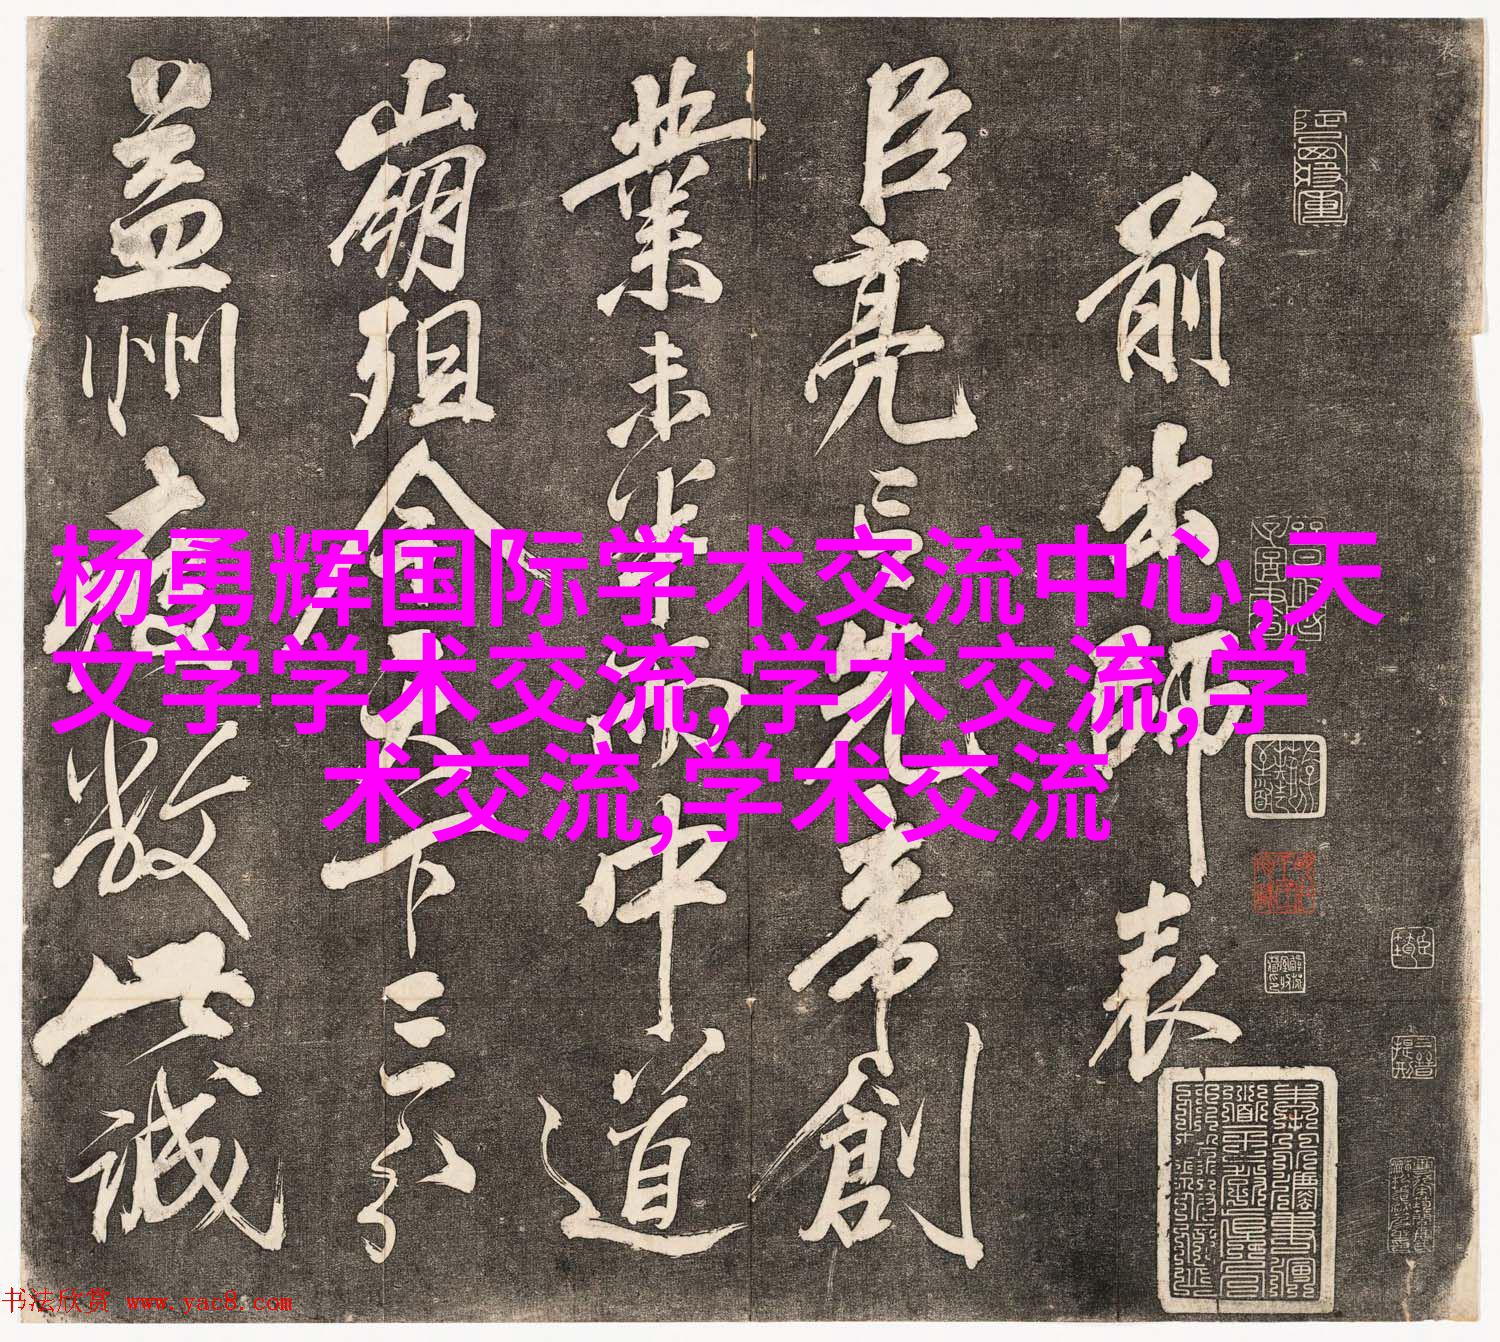 前出師表
臣亮言先帝創
業未半而中道
崩殂今天下三分
益州疲敝此誠
杨勇辉国际学术交流中心,天
文学学术交流,学术交流,学
术交流,学术交流
书法欣赏 www.yac8.com